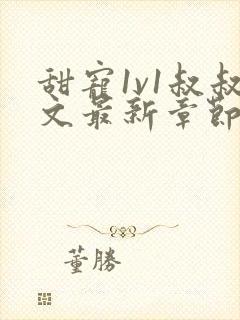 甜寵1v1叔叔
文最新章節
董勝